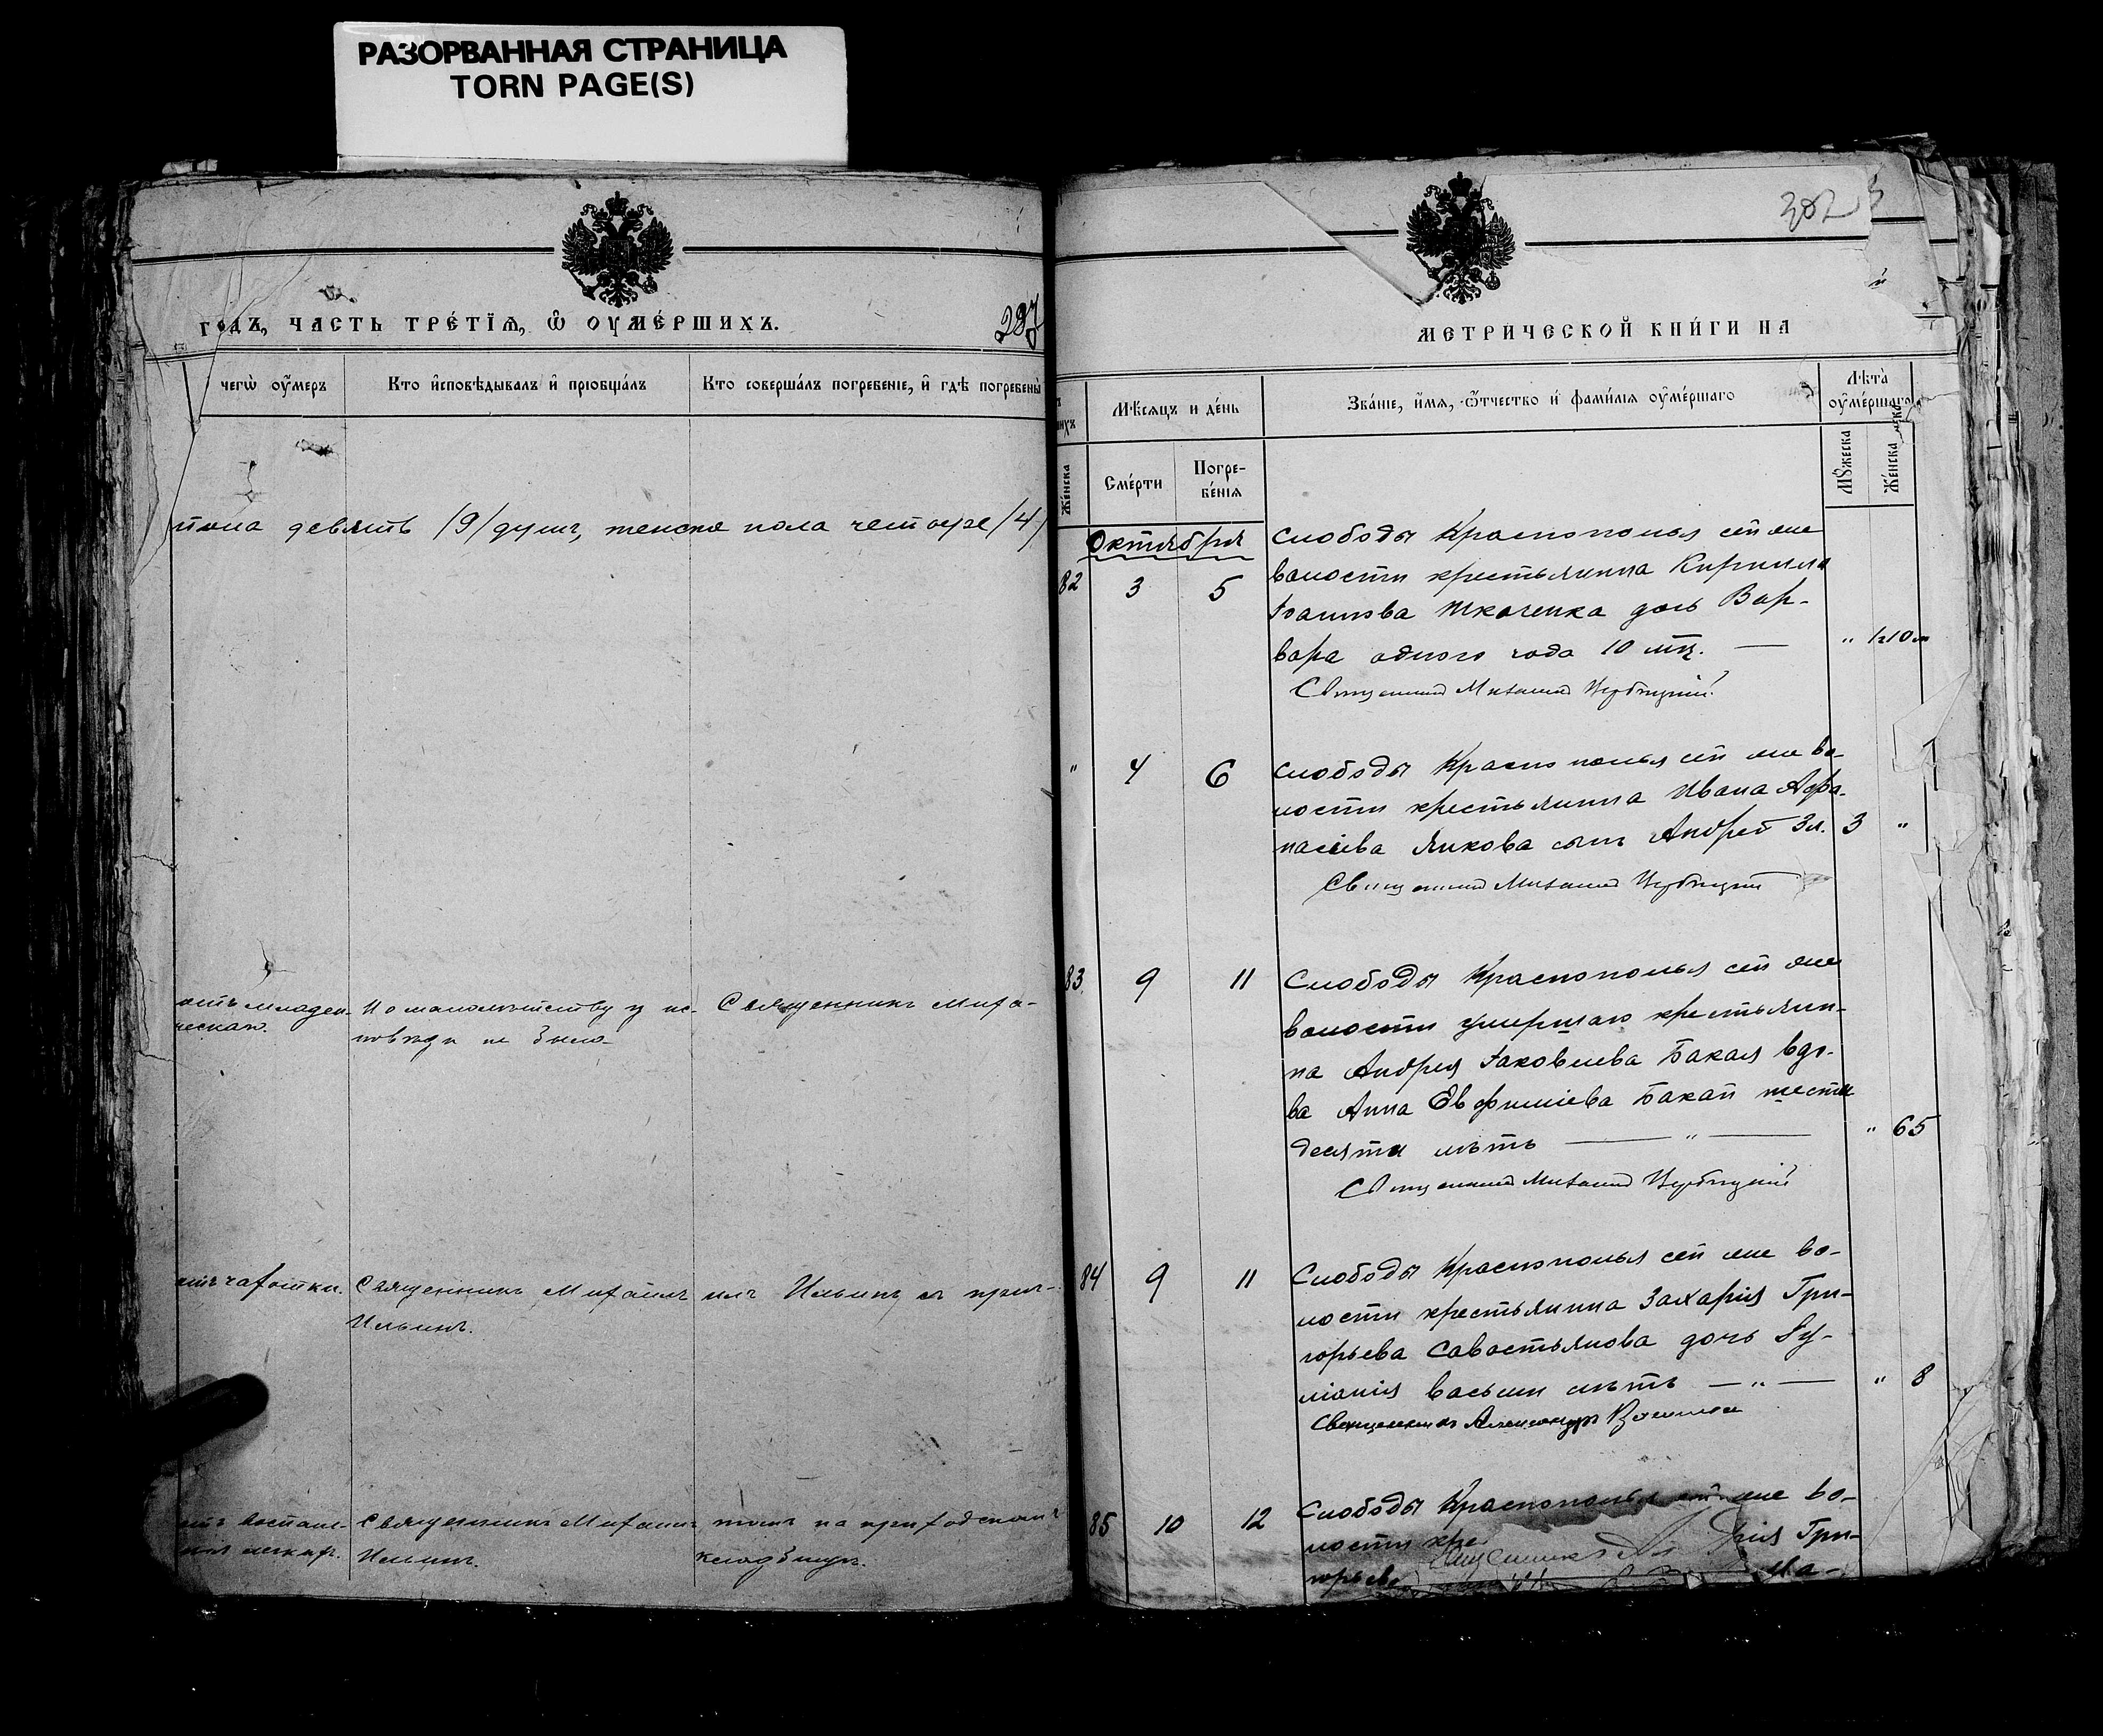 РАЗОРВАННАЯ СТРАНИЦА
TORN PAGE(S)
годъ, часть трétїѧ, ѡ оумéршихъ.
287
чегѡ оумеръ
Кто исповѣдывалъ и прїобщáлъ
Кто совершáлъ погребенїе, и гдѣ погребены
пола девять /9/ душъ, женска пола четыре /4/
младен-
ческаго.
По малолѣтству у ис-
повѣди не было
Священникъ Миха-
чахотки.
Священникъ Михаилъ
Ильинъ.
илъ Ильинъ съ прич-
Священникъ Михаилъ
Ильинъ.
томъ на приходскомъ
кладбищѣ.
302
МЕТРИЧЕСКОЙ КНИГИ НА
Мѣсяцъ и день
Звáнїе, имя, ѿтчество и фамилїя оумéршаго
Лѣта
оумéршаго
Жéнска
Смéрти
Погре-
бéнїя
Мꙋжеска
Жéнска
Октября
82
3
5
Слободы Краснополья той же
волости крестьянина Кирилла
Іоаннова Ткаченка дочь Вар-
вара одного года 10 мц.
"
1г10м
Священникъ Михаилъ
"
4
6
Слободы Краснополья той же во-
лости крестьянина Ивана Афа-
насіева Ликова сынъ Андрей 3 л.
3
"
Священникъ Михаилъ
83
9
11
Слободы Краснополья той же
волости умершаго крестьяни-
на Андрея Іаковлева Бакая вдо-
ва Анна Евфиміева Бакай шести
десяти лѣтъ — " —
"
65
Священникъ Михаилъ
84
9
11
Слободы Краснополья той же во-
лости крестьянина Захарія Гри-
горьева Савостьянова дочь Іу-
ліанія восьми лѣтъ — " —
"
8
Священникъ Александръ
85
10
12
Слободы Краснополья той же во-
лости кре
рія Гри-
горьева